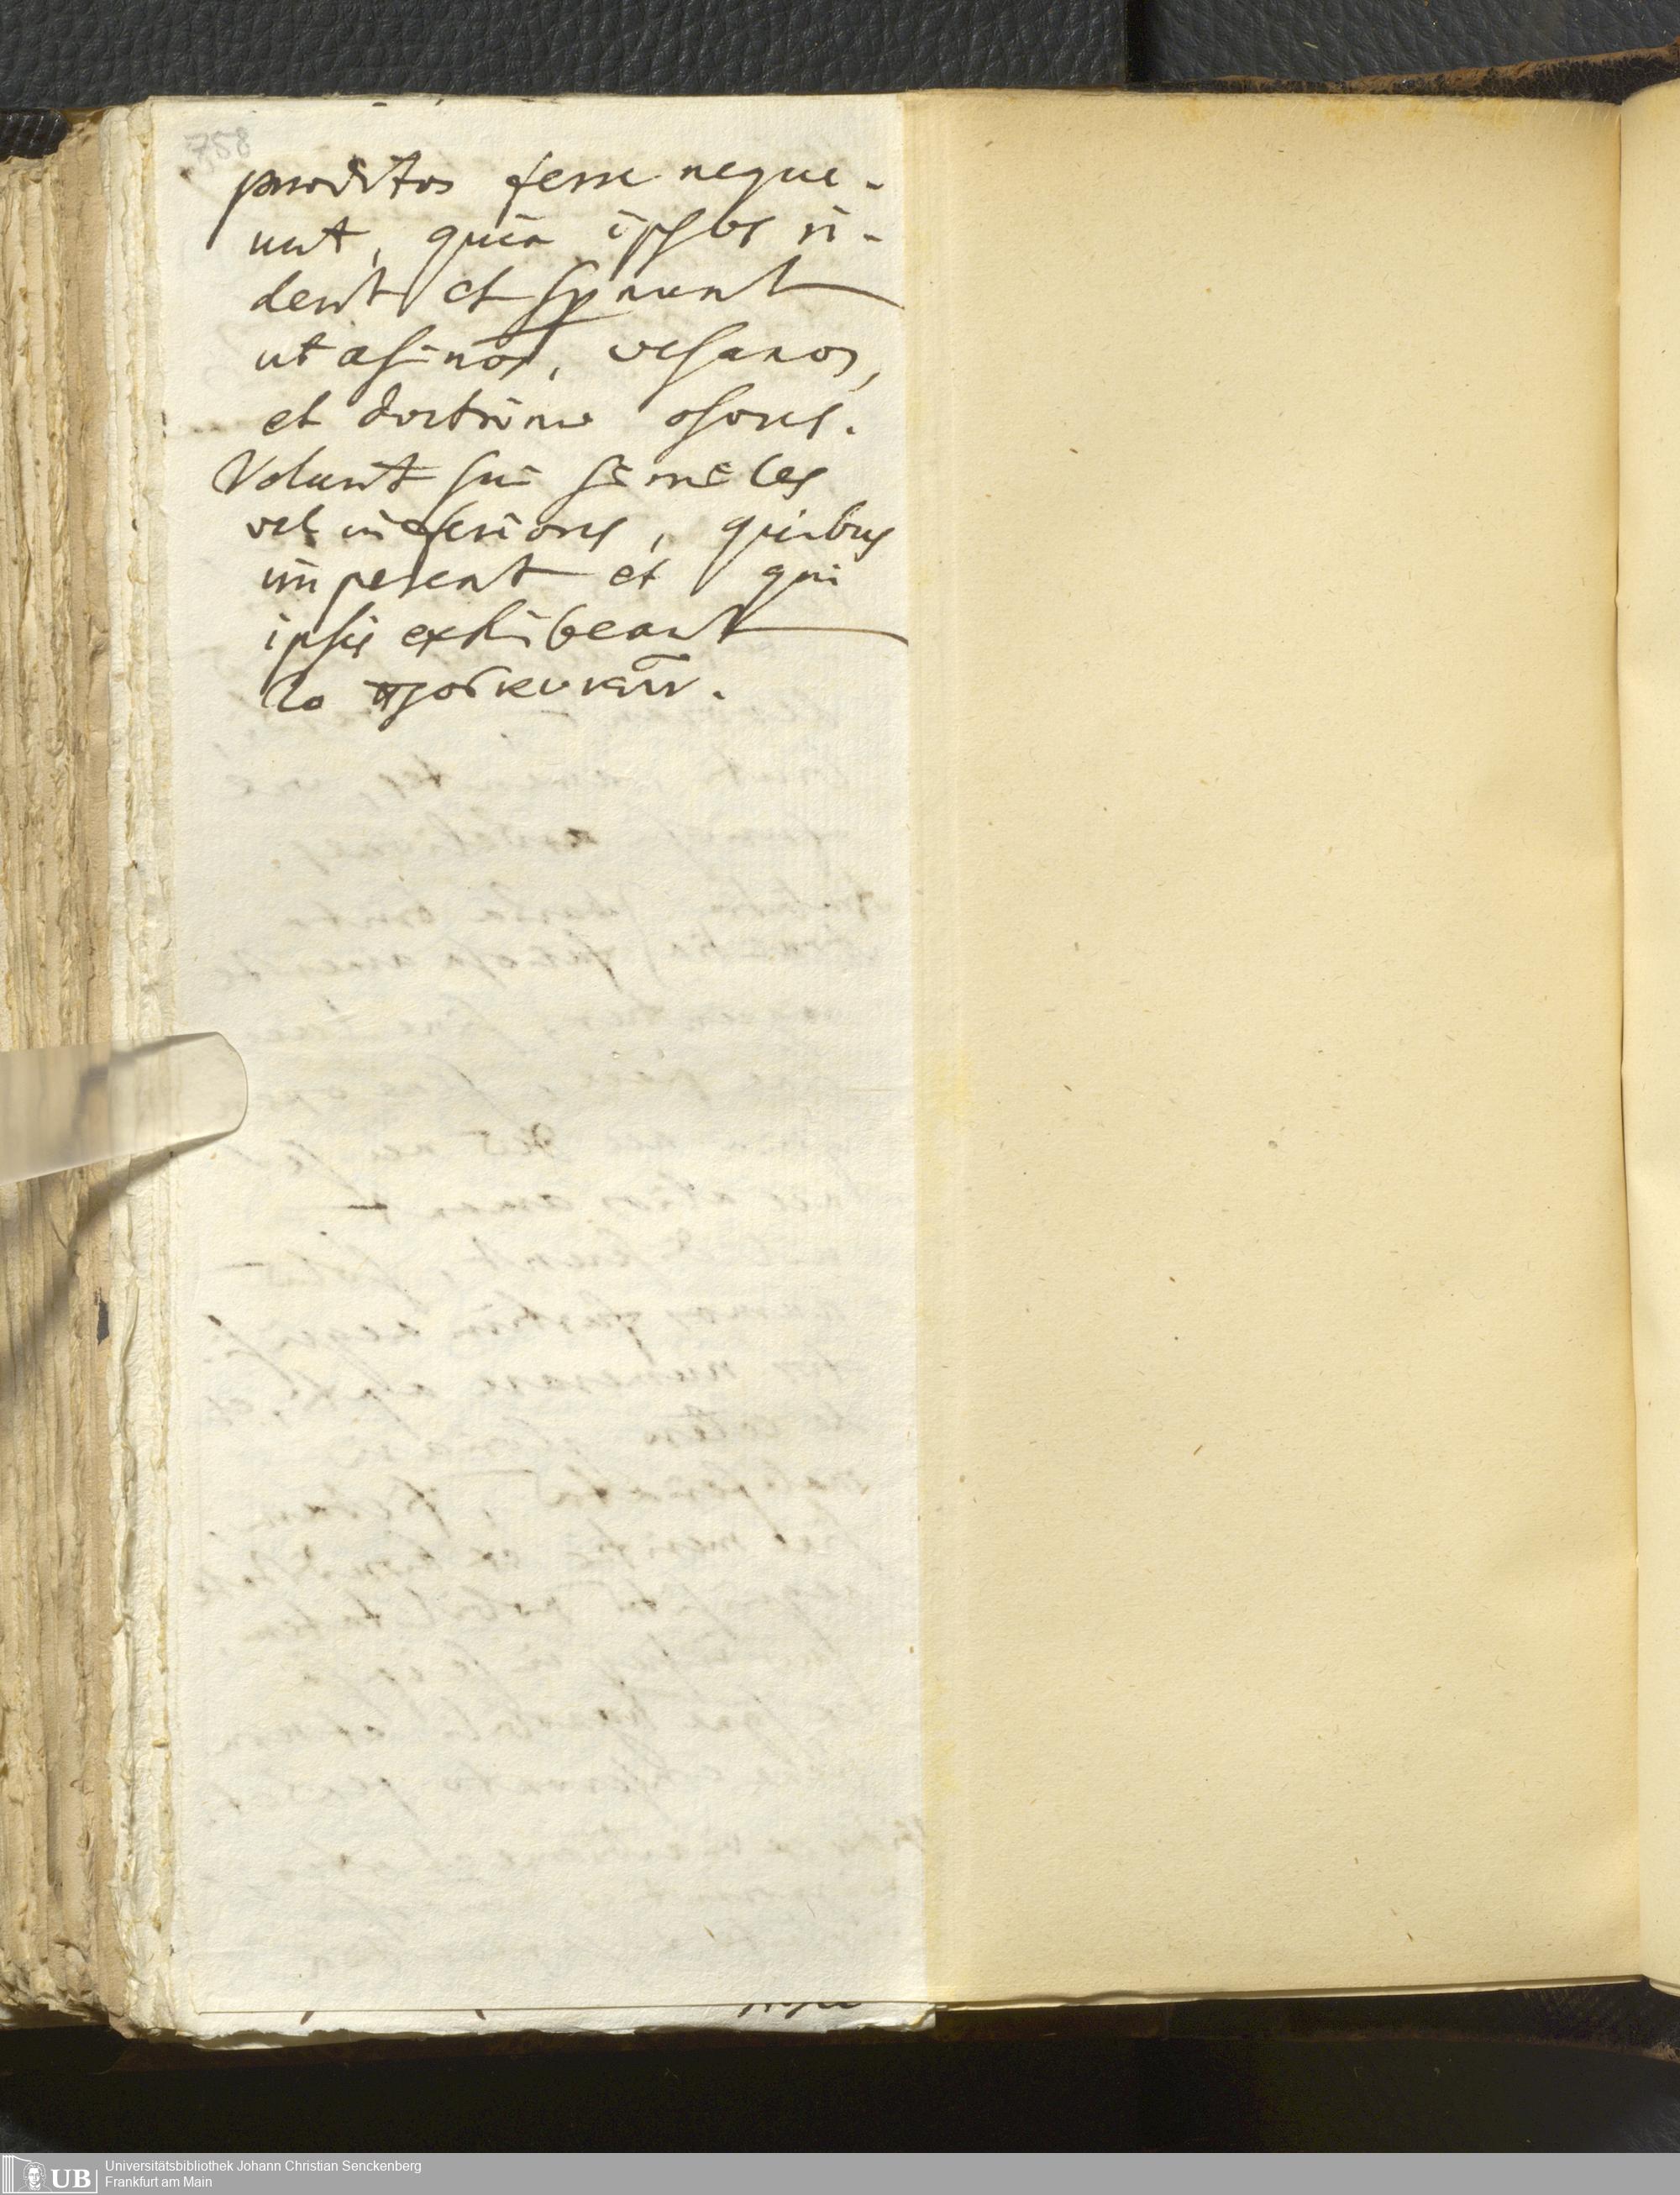 758
ferre neque-
unt, quia ipsos ri-
dent et spernunt
ut asinos, vesanos,
et doctrinae osores.
Volunt sui similes
vel inferiores, quibus
imperent et qui
ipsis exhibeant
το προσκυνεῖν.
UB Universitätsbibliothek Johann Christian Senckenberg
Frankfurt am Main